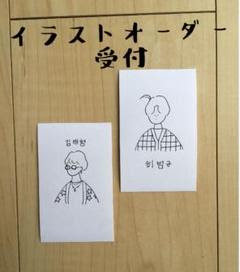 イラストオーダー
受付
김태형
최범규